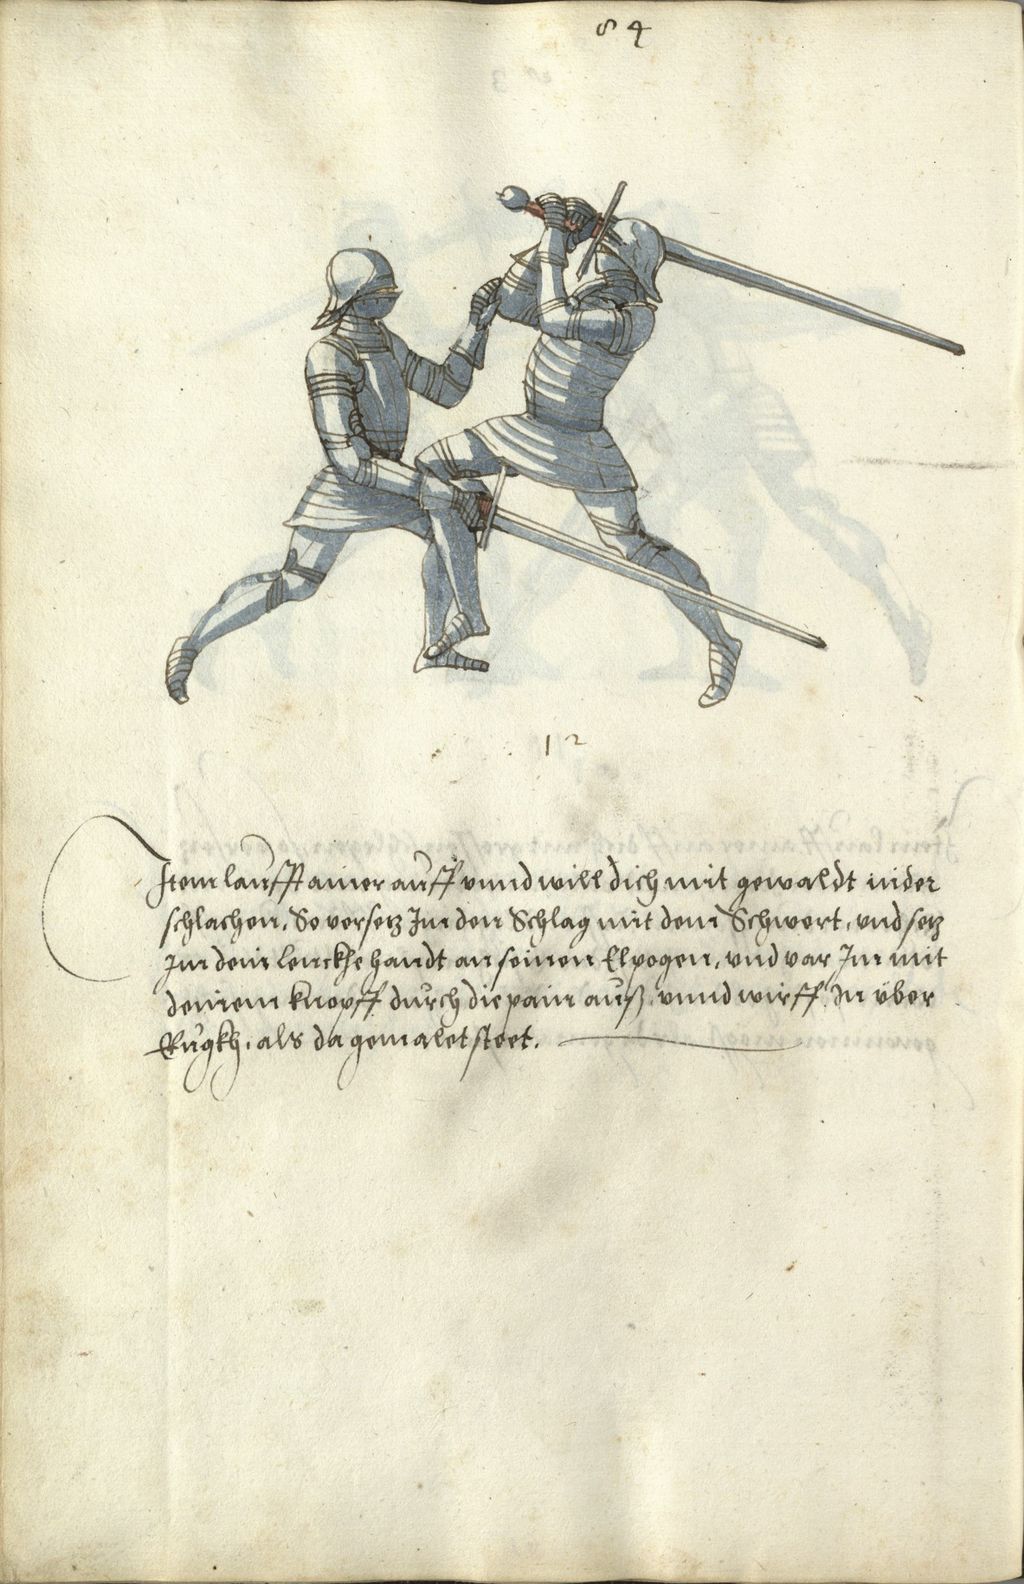 84
12
Item laufft ainer auff vnnd will dich mit gewaldt nider
schlachen, So versetz Im den Schlag mit dem Schwert, vnd setz
Im dein lenckhe handt an seinen Elpogen, vnd var Im mit
deinem knopff durch die pain auß, vnnd wirff In über
Rugkh, als da gemalet steet.